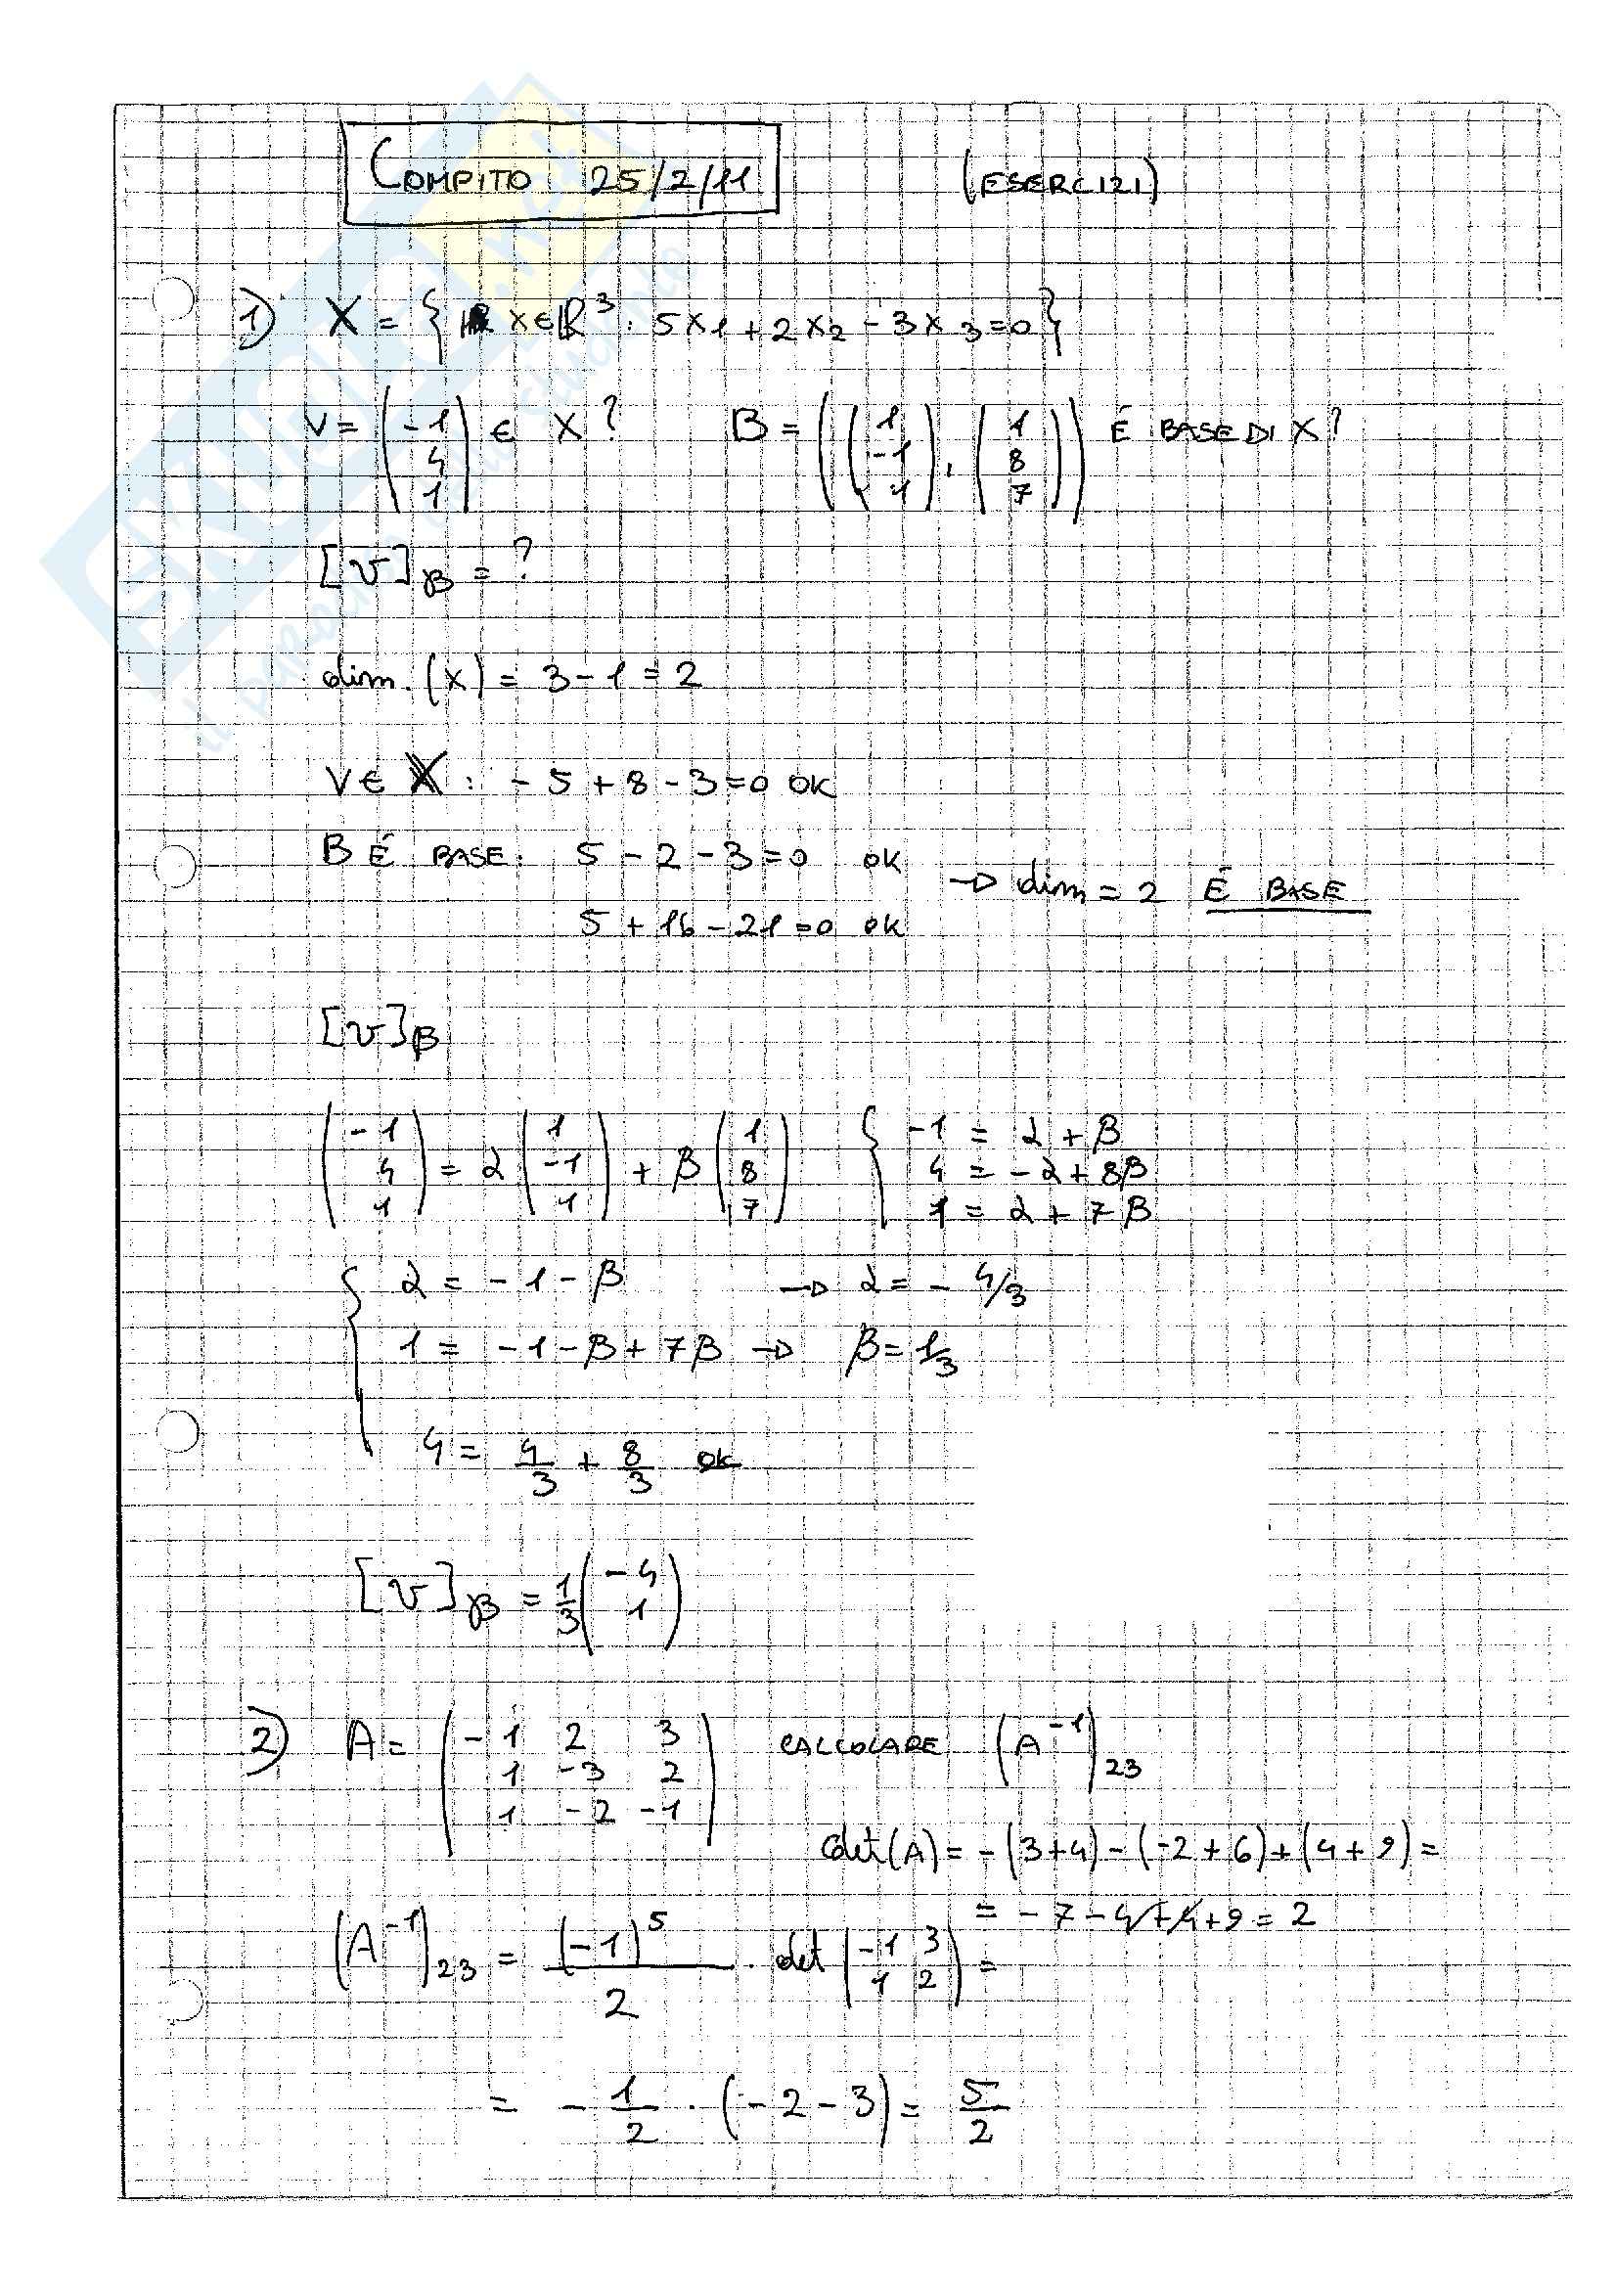 COMPITO 25/2/11 (ESERCIZI)
1) X = { x∈ℝ³ : 5x₁ + 2x₂ - 3x₃ = 0 }
V = (-1 4 1) ∈ X ? B = ((1 -1 1), (1 8 7)) É BASE DI X?
[v]_B = ?
dim. (X) = 3 - 1 = 2
V ∈ X : - 5 + 8 - 3 = 0 OK
B É BASE: 5 - 2 - 3 = 0 OK
→ dim = 2 É BASE
5 + 16 - 21 = 0 OK
[v]_B
(-1 4 1) = α (1 -1 1) + β (1 8 7) { -1 = α + β
4 = -α + 8β
1 = α + 7β
{ α = - 1 - β → α = - 4/3
1 = - 1 - β + 7β → β = 1/3
4 = 4/3 + 8/3 OK
[v]_B = 1/3 (-4 1)
2) A = (-1 2 3
1 -3 2
1 -2 -1) CALCOLARE (A⁻¹)₂₃
det(A) = - (3+4) - (-2+6) + (4+9) =
= - 7 - 4 + 4 + 9 = 2
(A⁻¹)₂₃ = (-1)⁵/2 · det (-1 3 1 2) =
= - 1/2 · (-2 - 3) = 5/2